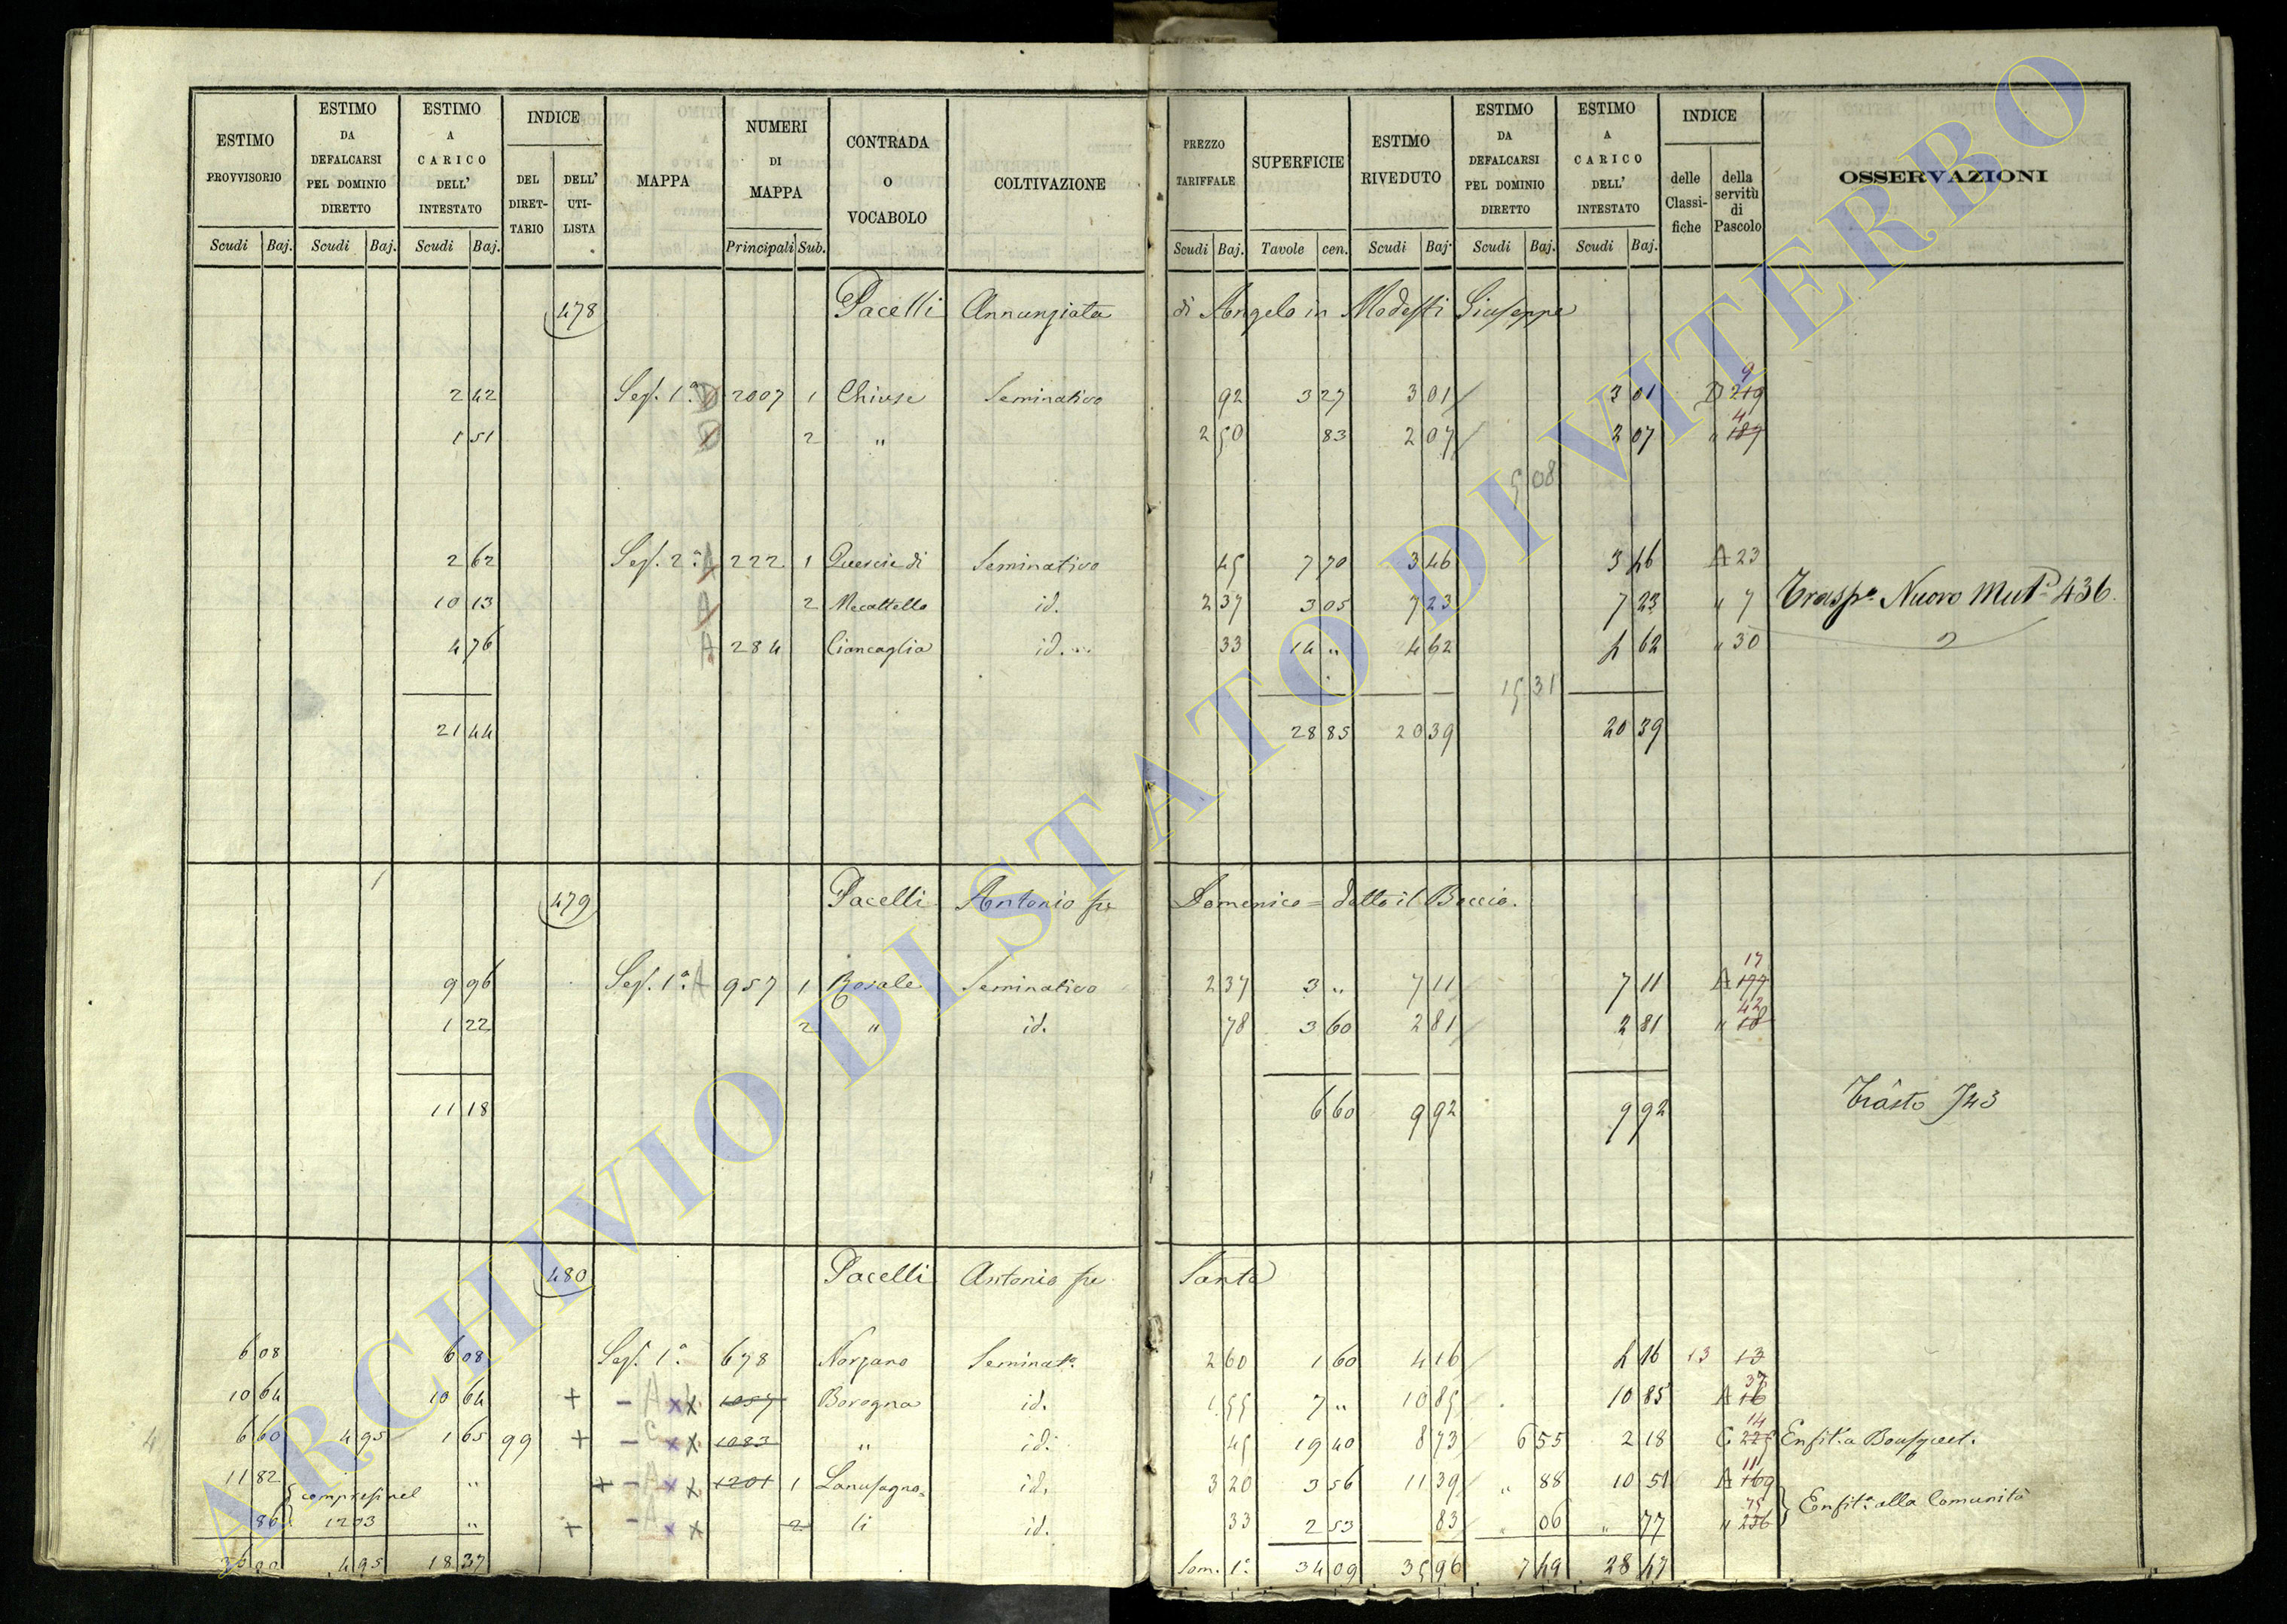 ESTIMO PROVVISORIO Scudi Baj.
ESTIMO DA DEFALCARSI PEL DOMINIO DIRETTO Scudi Baj.
ESTIMO A CARICO DELL' INTESTATO Scudi Baj.
INDICE DEL DIRET-TARIO DELL' UTI-LISTA
MAPPA
NUMERI DI MAPPA Principali Sub.
CONTRADA O VOCABOLO
COLTIVAZIONE
PREZZO TARIFFALE Scudi Baj.
SUPERFICIE Tavole cen.
ESTIMO RIVEDUTO Scudi Baj.
ESTIMO DA DEFALCARSI PEL DOMINIO DIRETTO Scudi Baj.
ESTIMO A CARICO DELL' INTESTATO Scudi Baj.
INDICE delle Classi-fiche della servitù di Pascolo
OSSERVAZIONI
478 Pacelli Annunziata di Angelo in Modesti Giuseppe
2 42 Sez. 1ª D 2007 1 Chiuse Seminativo 92 3 27 3 01 3 01 D 219 9
1 51 D 2 " 2 50 83 2 07 2 07 " 187 4
5 08
2 62 Sez. 2ª A 222 1 Quercie di Seminativo 45 7 70 3 46 3 46 A 23
10 13 A 2 Mecattello id. 2 37 3 05 7 23 7 23 " 7 Trasp. Nuovo Mut. 436.
4 76 A 284 Ciancaglia id. 33 14 " 4 62 4 62 " 30
15 31
21 44 28 85 20 39 20 39
479 Pacelli Antonio fu Domenico = detto il Boccio.
9 96 Sez. 1ª A 957 1 Rosale Seminativo 2 37 3 " 7 11 7 11 A 177 17
1 22 2 " id. 78 3 60 2 81 2 81 " 18 42
11 18 6 60 9 92 9 92 Trasto 743
480 Pacelli Antonio fu Sante
6 08 6 08 Sez. 1ª 678 Norzano Seminat. 2 60 1 60 4 16 4 16 13 13
10 64 10 64 + - A x x 1057 Borogna id. 1 55 7 " 10 85 10 85 A 16 37
4 6 60 4 95 1 65 99 + - x x 1083 " id. 45 19 40 8 73 6 55 2 18 C 225 14 Enfit. a Bousquet.
11 82 compresi nel " + - A x x 1201 1 Lanusagno= id. 3 20 3 56 11 39 " 88 10 51 A 169 11
86 1203 " + - A x x 2 li id. 33 2 53 83 " 06 " 77 " 256 Enfit. alla Comunità
4 95 18 37 Som. 1ª 34 09 35 96 7 49 28 47
ARCHIVIO DI STATO DI VITERBO